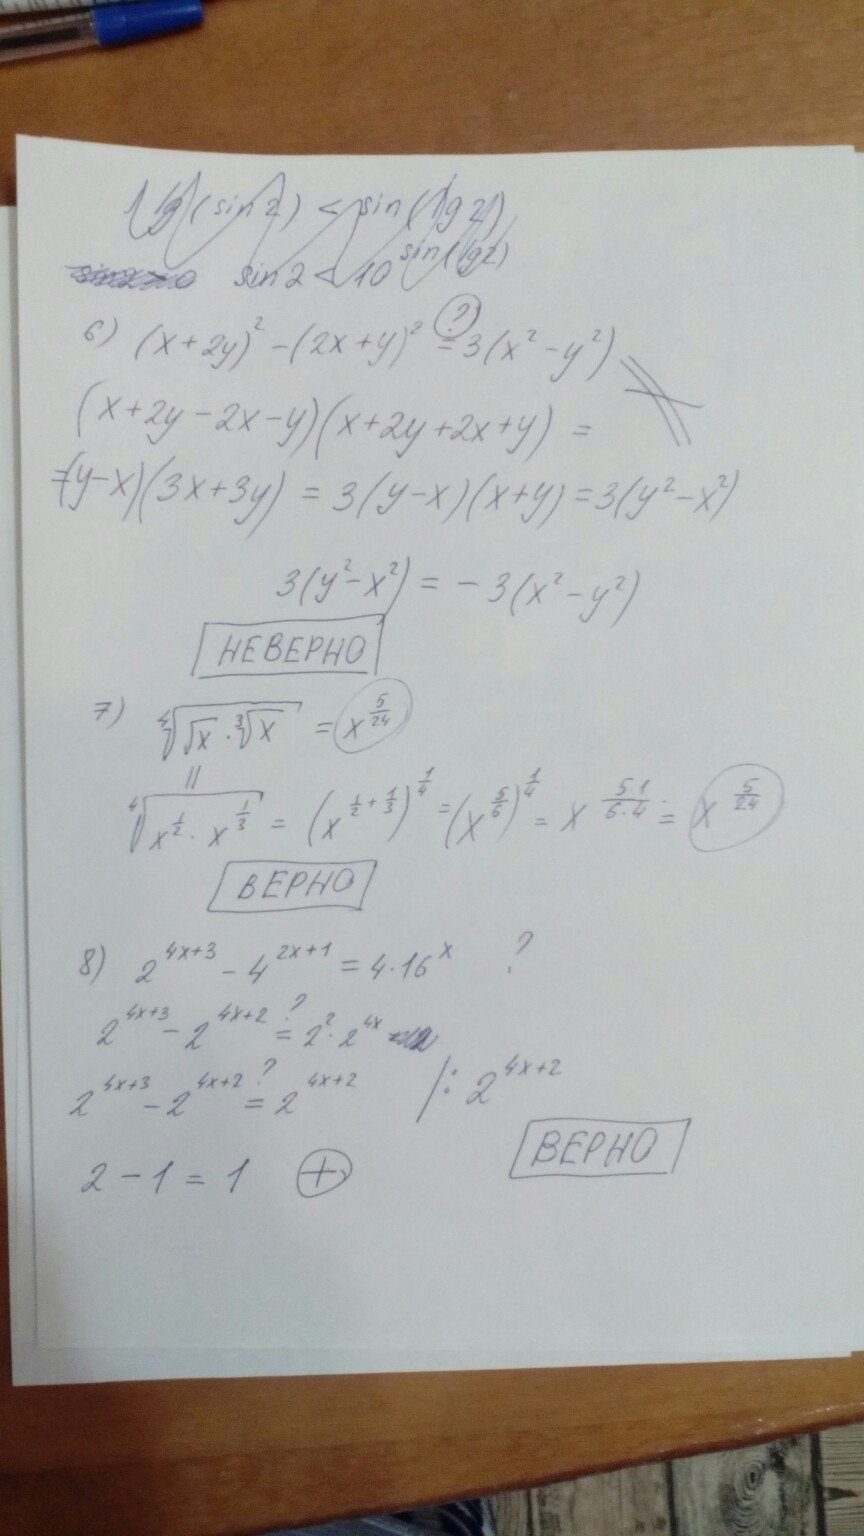 lg(sin 2) < sin(lg 2)
sin 2 < 10^sin(lg 2)
6) (x+2y)² - (2x+y)² =(?) 3(x² - y²)
(x+2y-2x-y)(x+2y+2x+y) =
=(y-x)(3x+3y) = 3(y-x)(x+y) = 3(y²-x²)
3(y²-x²) = -3(x²-y²)
НЕВЕРНО
7) ⁴√(√x · ³√x) = x^(5/24)
||
⁴√(x^(1/2) · x^(1/3)) = (x^(1/2+1/3))^(1/4) = (x^(5/6))^(1/4) = x^(5·1/6·4) = x^(5/24)
ВЕРНО
8) 2^(4x+3) - 4^(2x+1) = 4·16^x ?
2^(4x+3) - 2^(4x+2) =? 2²·2^(4x)
2^(4x+3) - 2^(4x+2) =? 2^(4x+2) |: 2^(4x+2)
ВЕРНО
2 - 1 = 1 (+)